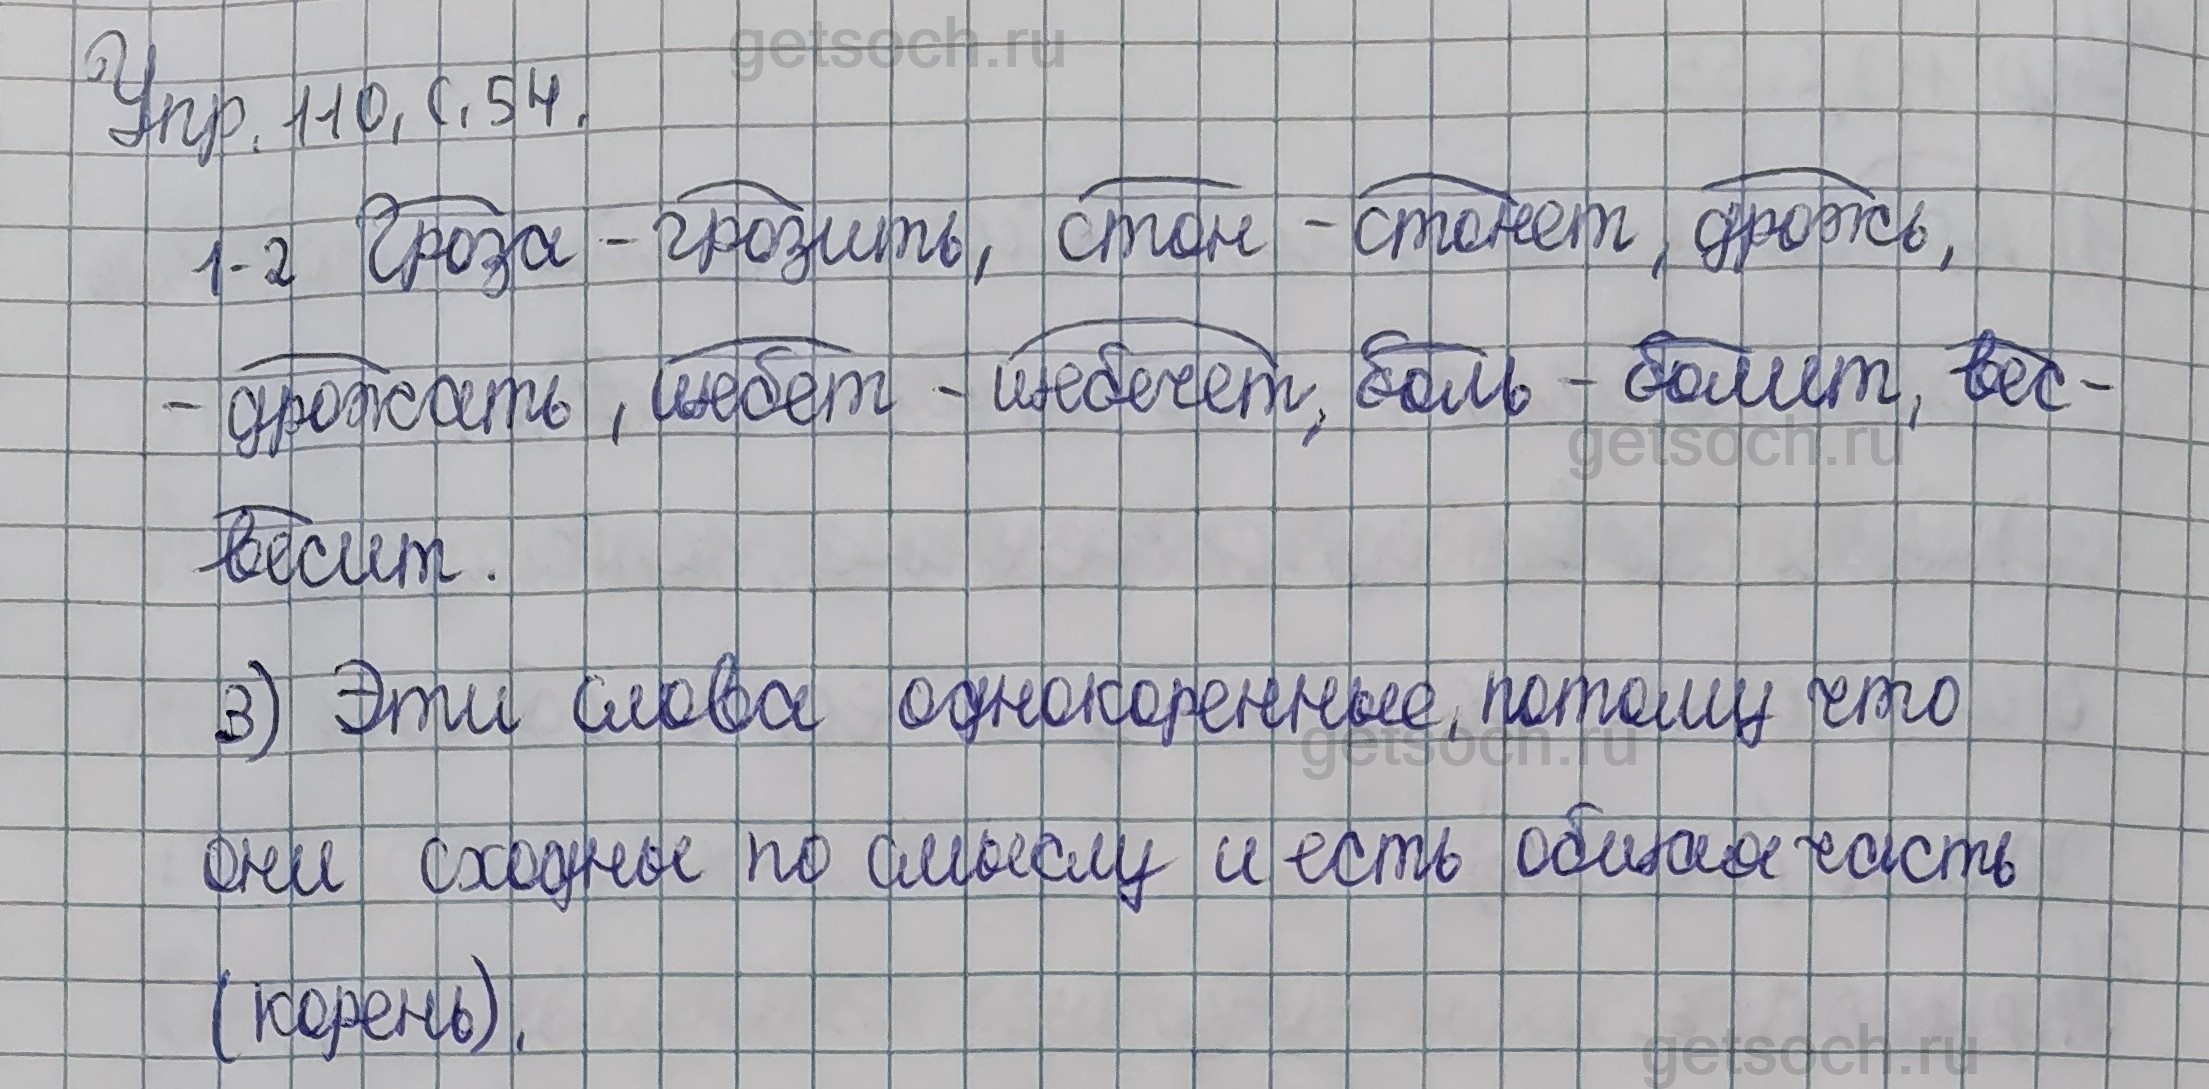 getsoch.ru
Упр. 110, С. 54.
1-2 Гроза - грозить, стон - стонет, дрожь,
- дрожать, щебет - щебечет, боль - болит, вес -
getsoch.ru
весит.
3) Эти слова однокоренные, потому что
getsoch.ru
они сходные по смыслу и есть общая часть
(корень).
getsoch.ru